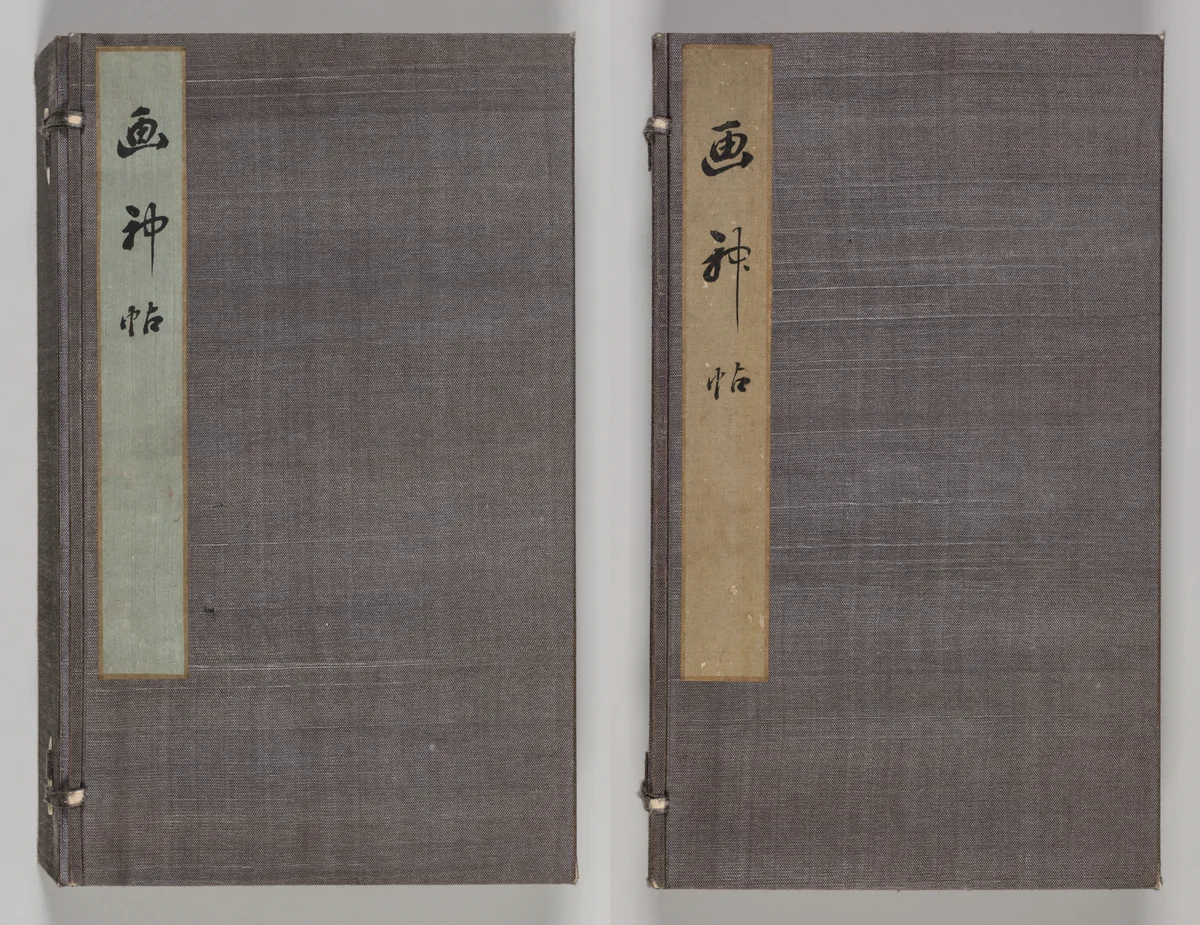 画神帖
画神帖